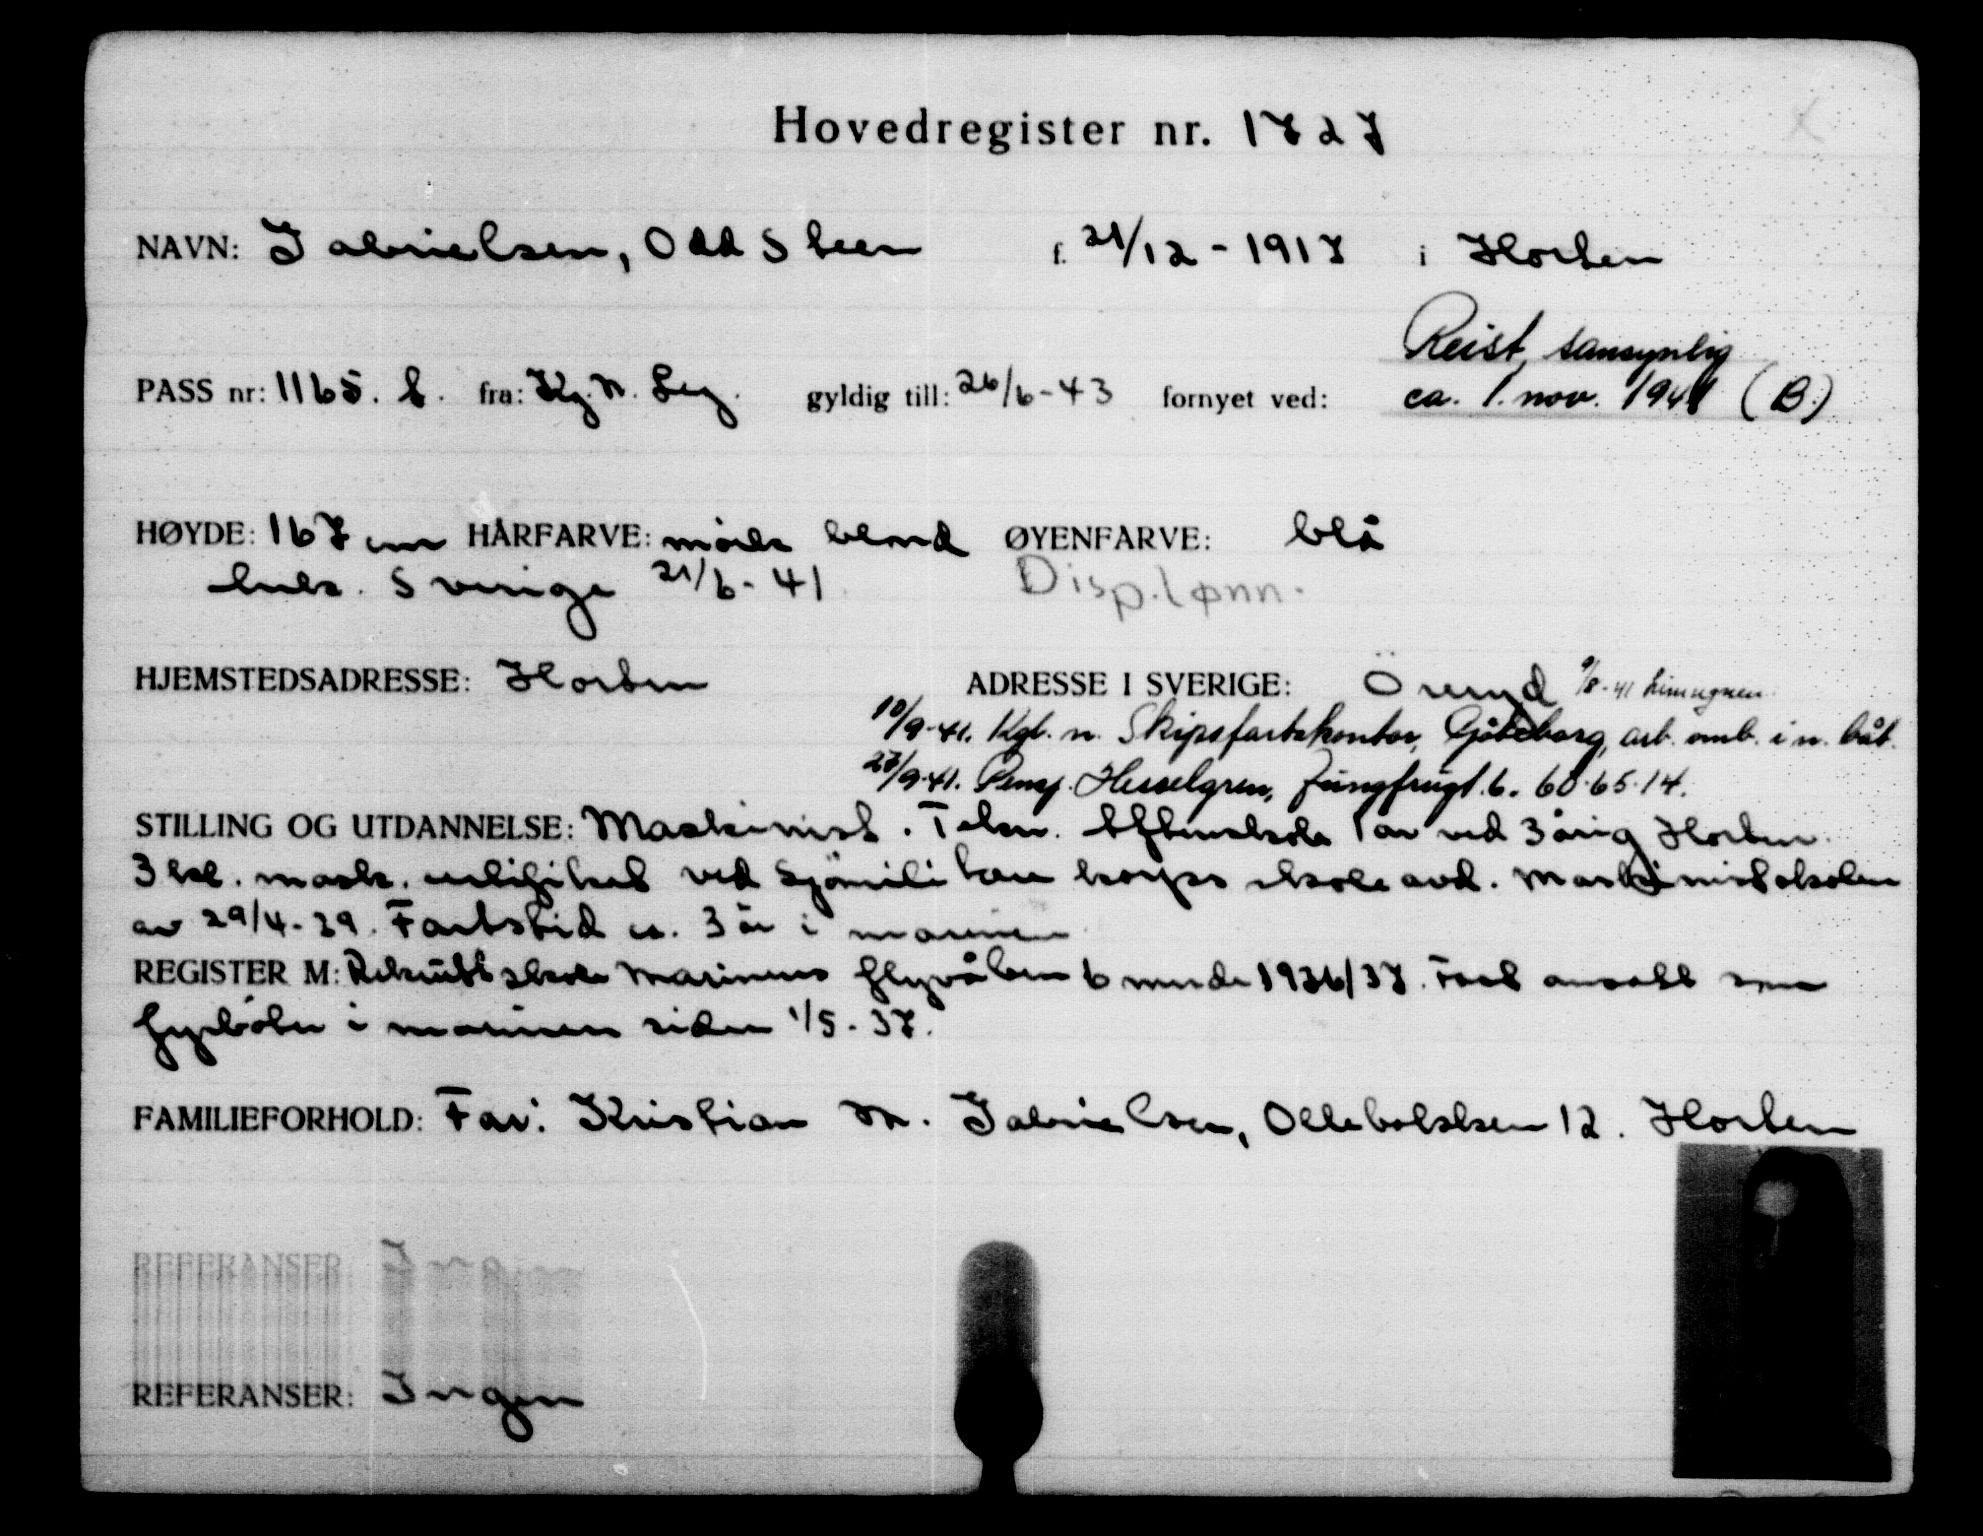 Hovedregister nr. 1727
NAVN: Gabrielsen, Odd Steen f. 21/12 - 1917 i Horten
Reist sansynlig
PASS nr: 1165. b. fra: Kg. N. Leg. gyldig till: 26/6-43 fornyet ved: ca. 1. nov. 1941 (B.)
HØYDE: 167 cm HÅRFARVE: mörk blond ØYENFARVE: blå
Sverige 21/6-41 Disp. lønn.
HJEMSTEDSADRESSE: Horten ADRESSE I SVERIGE: Öreryd 9/8-41
10/9-41. Kgl. n. Skipsfartskontor, Göteborg, arb. omb. i n. båt.
27/9-41. Pensj. Hesselgren, Jungfrugt. 6. 60.65.14.
STILLING OG UTDANNELSE: Maskinist. Tekn. Aftenskole 1 år ved 3 årig Horten.
3 kl. mask. sertifikat ved Sjömilitære korps skole avd. Maskinistskolen
av 29/4-39. Fartstid ca. 3 år i marinen
REGISTER M: Rekruttskole Marinens flyvåben 6 mndr 1936/37. Fast ansatt som
fyrböter i marinen siden 1/5-37.
FAMILIEFORHOLD: Far: Kristian M. Gabrielsen, Ollebakken 12. Horten
REFERANSER: Ingen
REFERANSER: Ingen